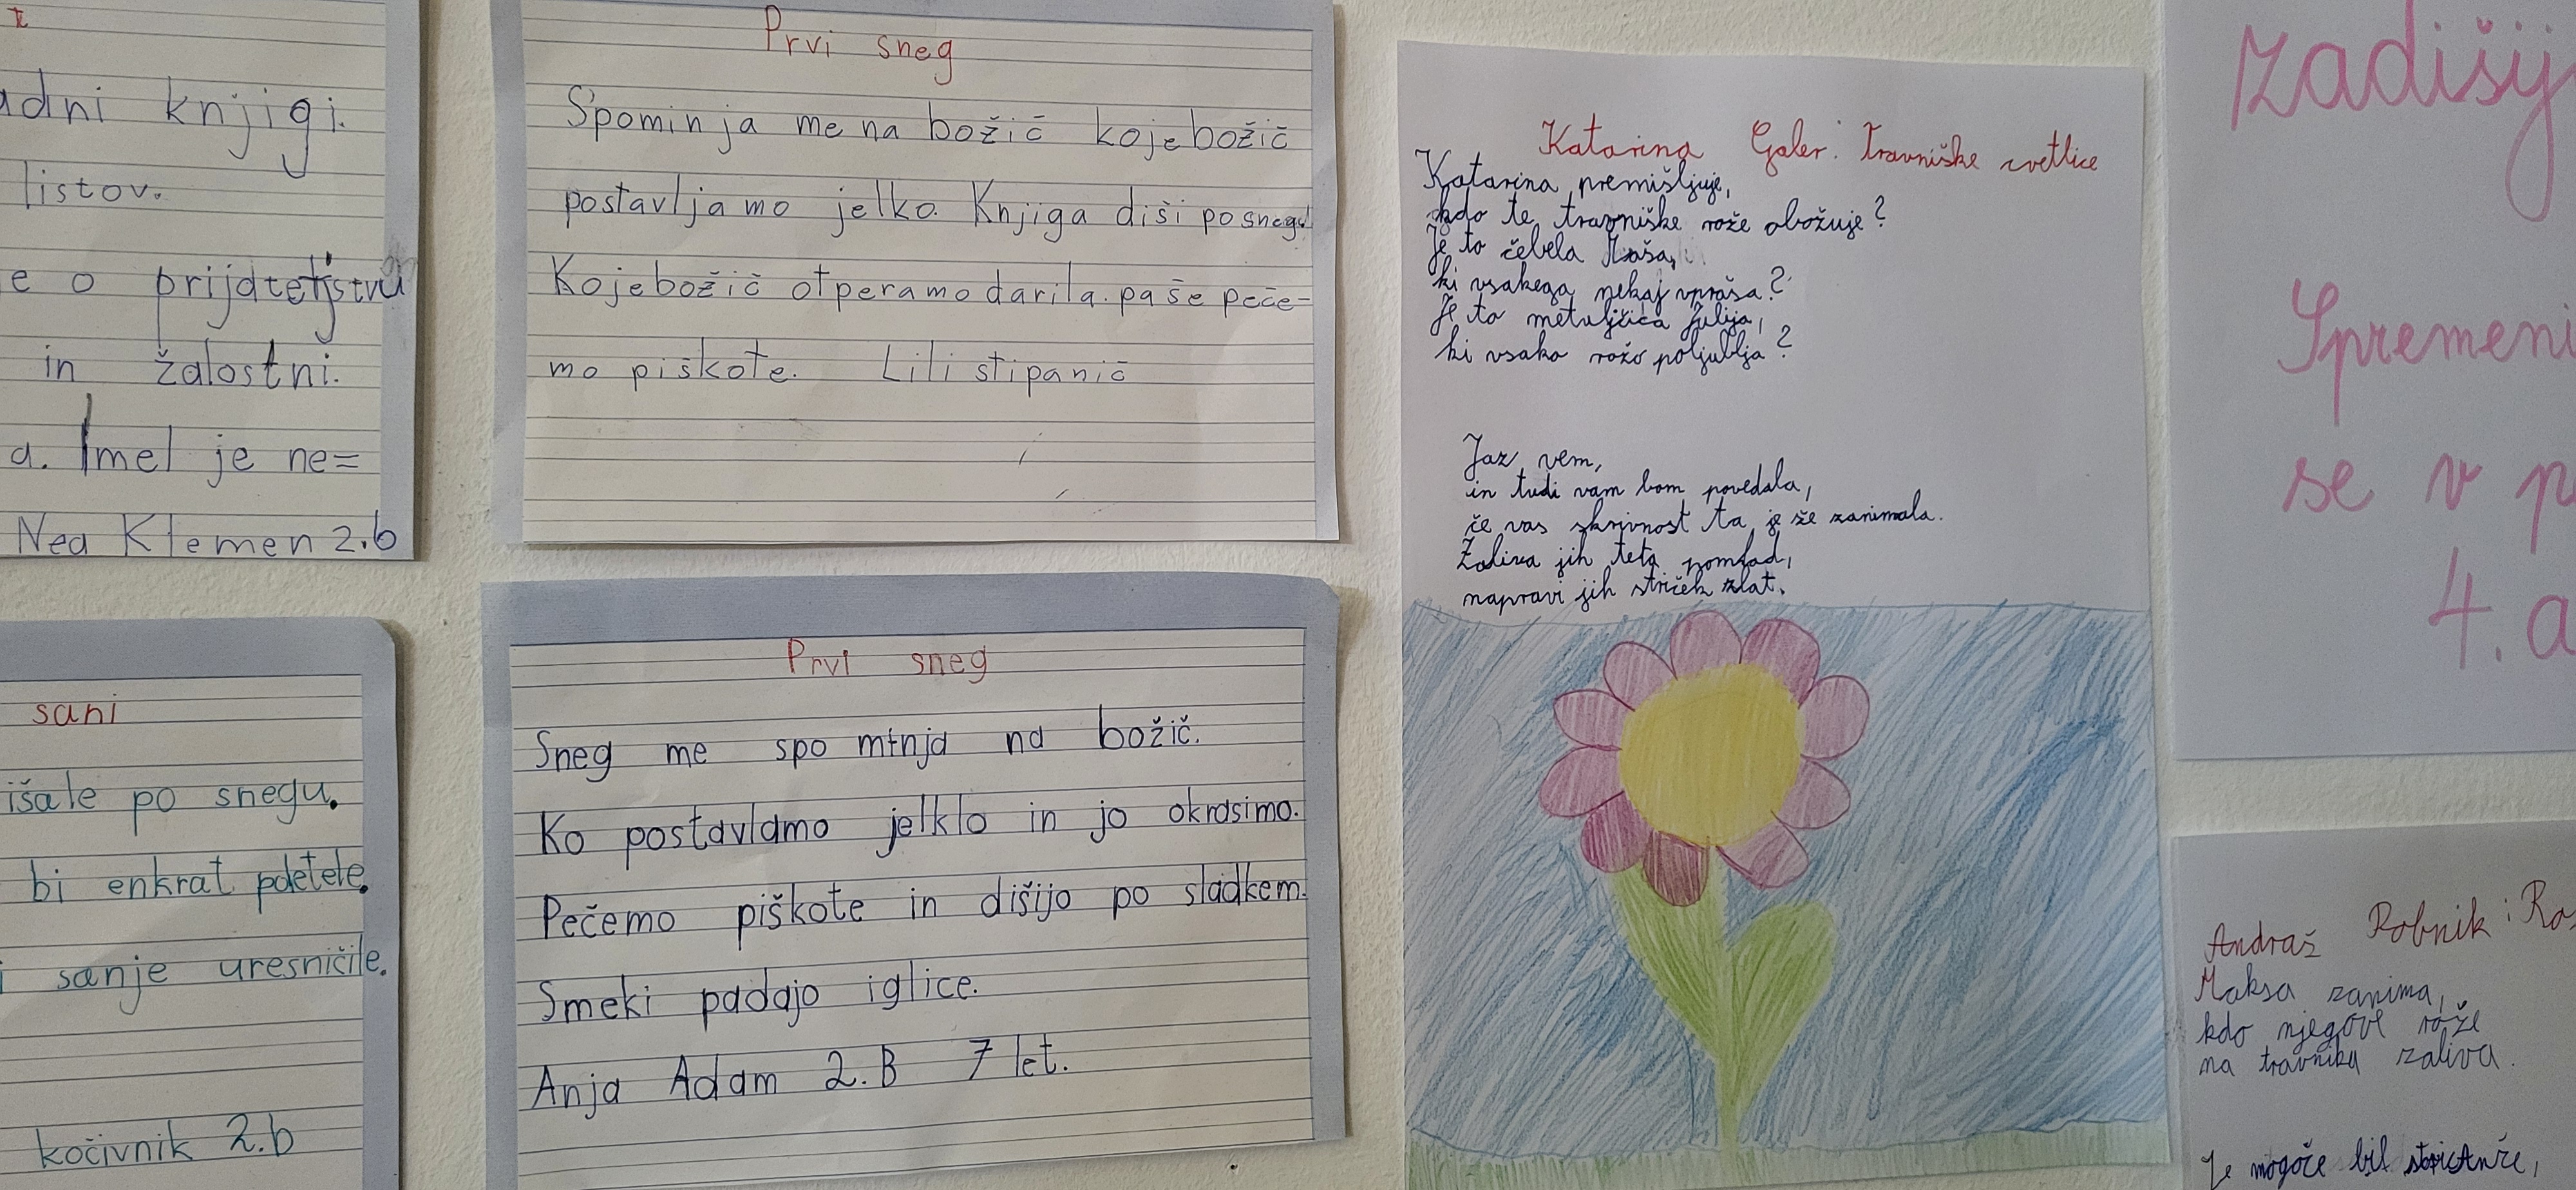 adni knjigi.
listov.
e o prijateljstvu
in žalostni.
a. Imel je ne=
Nea Klemen 2.b
sani
išale po snegu.
bi enkrat poletele.
i sanje uresničile.
kočivnik 2.b
Prvi sneg
Spominja me na božič ko je božič
postavljamo jelko. Knjiga diši po snegu
Ko je božič otperamo darila. pa še peče-
mo piškote. Lili stipanič
Prvi sneg
Sneg me spo minja na božič.
Ko postavlamo jelklo in jo okrasimo.
Pečemo piškote in dišijo po sladkem.
Smeki padajo iglice.
Anja Adam 2.B 7 let.
Katarina Galer: Travniške cvetlice
Katarina premišljuje,
kdo te travniške rože obožuje?
Je to čebela Maša,
ki vsakega nekaj vpraša?
Je to metuljčica Julija,
ki vsako rožo poljublja?
Jaz vem,
in tudi vam bom povedala,
če vas skrivnost ta je že zanimala.
Zaliva jih teta pomlad,
napravi jih striček zlat.
zadišij
Spremeni
se v p
4. a
Andraž Robnik: Ro
Maksa zanima,
kdo njegove rože
na travniku zaliva.
Je mogoče bil stric Anže,